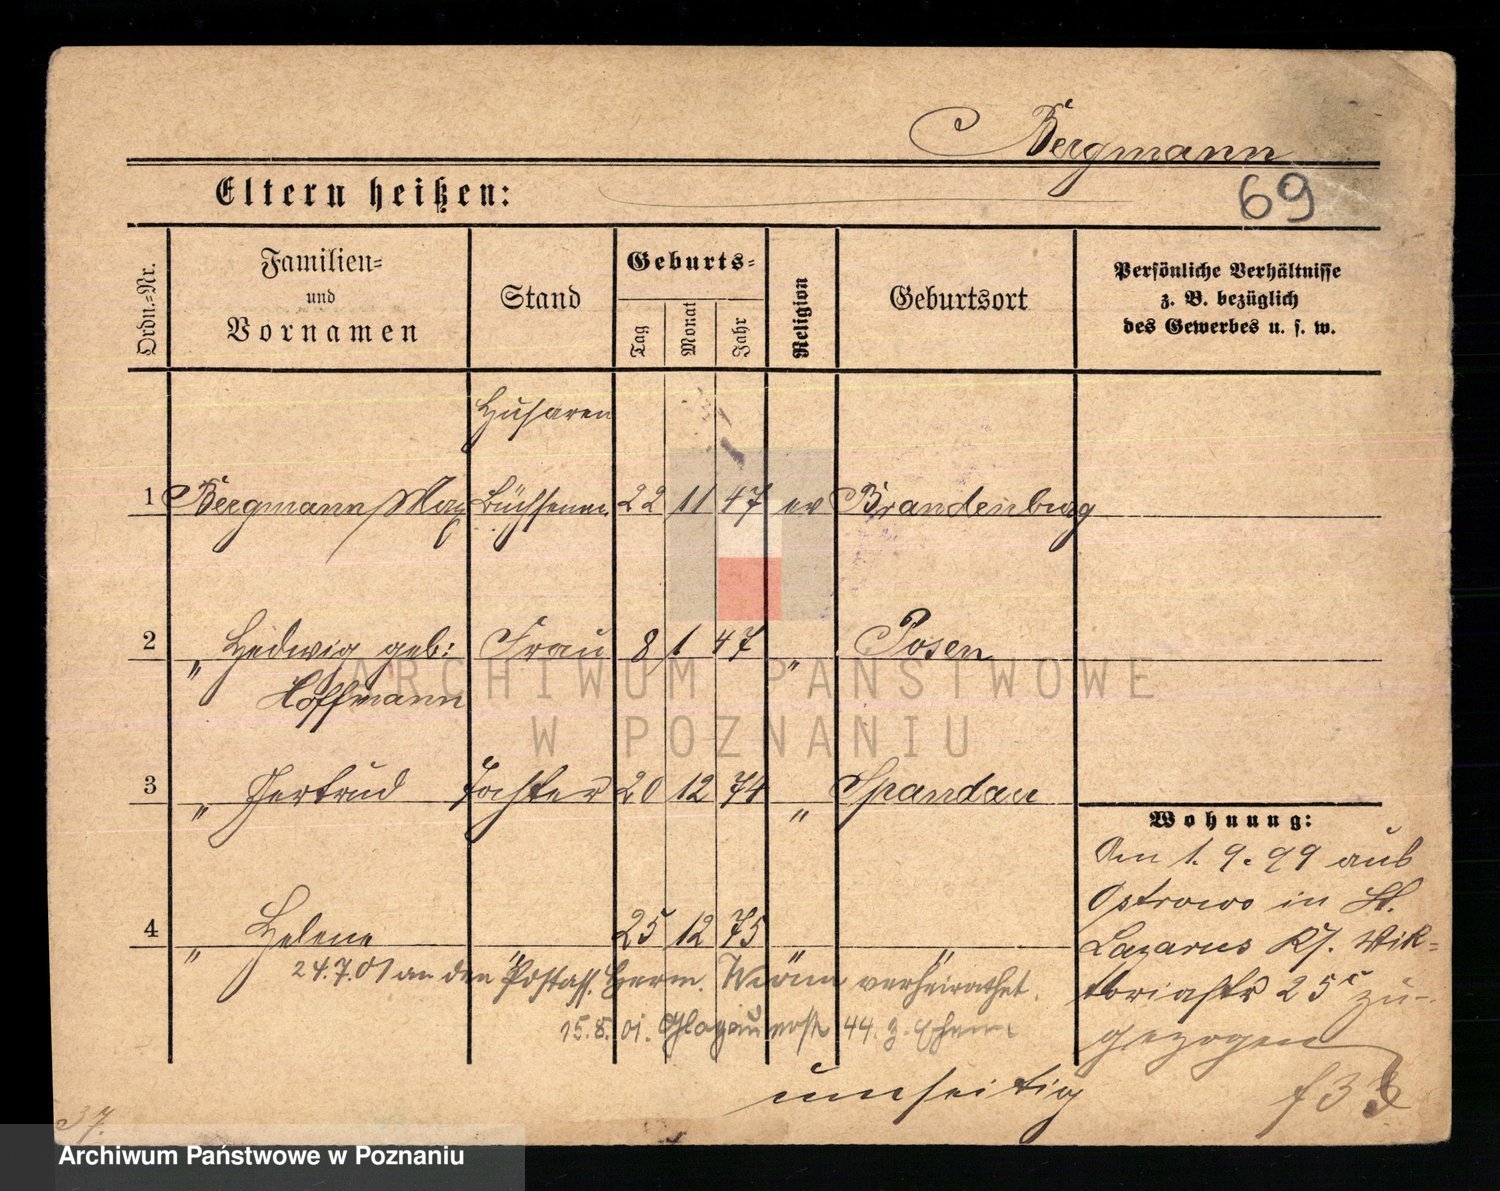 Bergmann
Eltern heißen:
69
Ordn.=Nr.
Familien=
und
Vornamen
Stand
Geburts=
Tag
Monat
Jahr
Religion
Geburtsort
Persönliche Verhältnisse
z. B. bezüglich
des Gewerbes u. s. w.
Husaren
1 Bergmann Max Büchsenm. 22 11 47 ev Brandenburg
2 " Hedwig geb: Frau 8 1 47 " Posen
Hoffmann
3 " Gertrud Tochter 20 12 74 " Spandau
Wohnung:
Am 1. 9. 99 aus
Ostrowo in St.
Lazarus Viktoriastr 25 zu-
gezogen
4 " Helene " 25 12 75 " "
24.7.01 an den Postass. Herm. verheirathet.
15.8.01. Glogau 44. z. Ehem
umseitig
f33
37.
ARCHIWUM PAŃSTWOWE
W POZNANIU
Archiwum Państwowe w Poznaniu